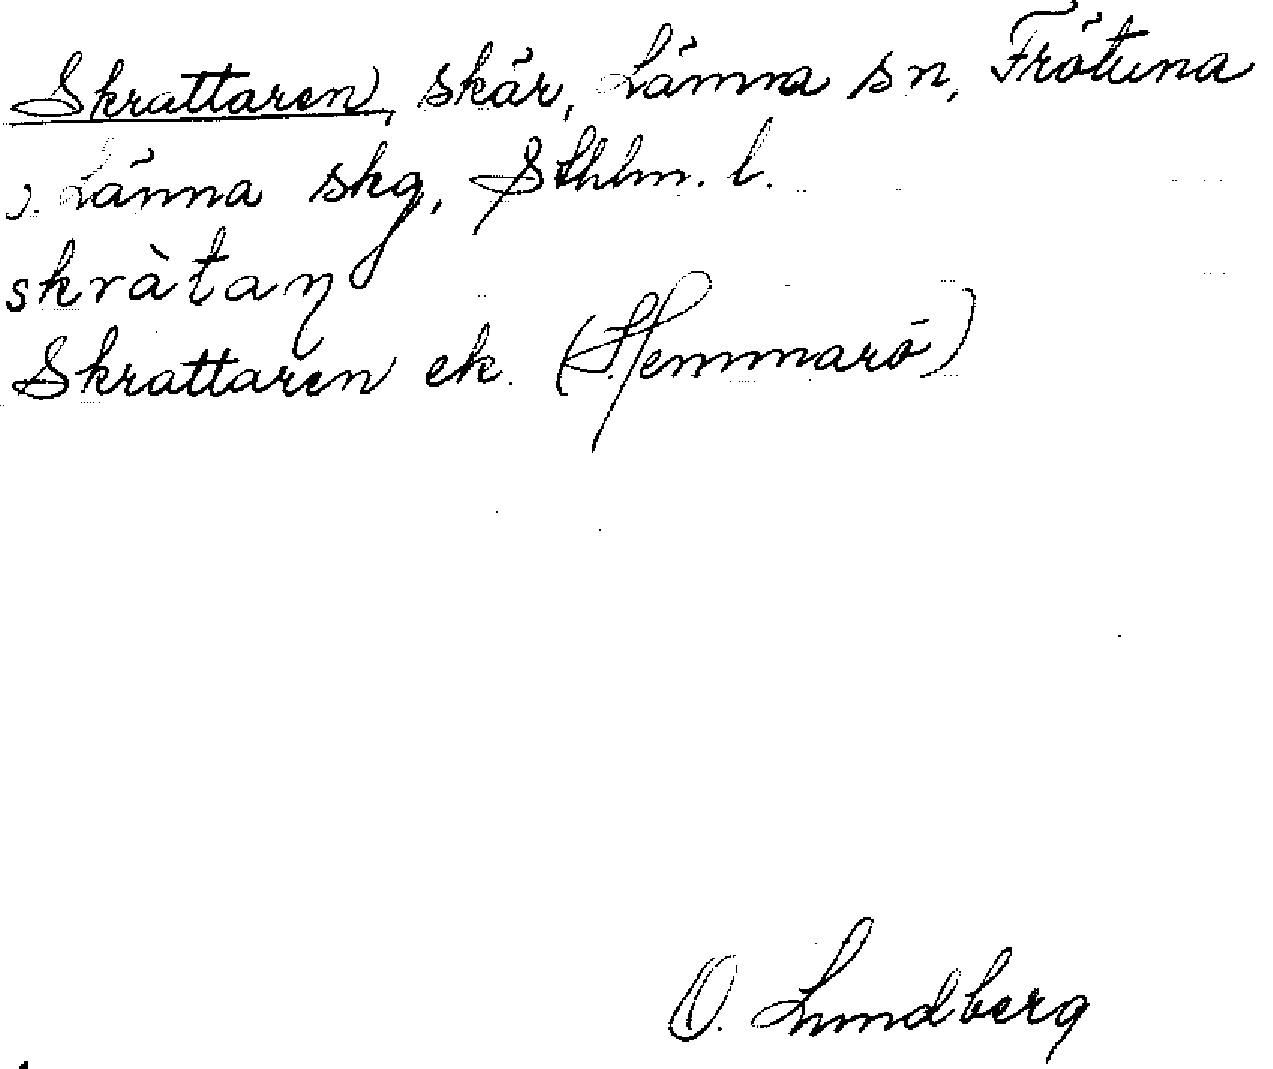 Skrattaren, skär, Länna sn, Frötuna
o. Länna skg, Sthlm. l.
skràtaŋ
Skrattaren ek. (Hemmarö)
O. Lundberg